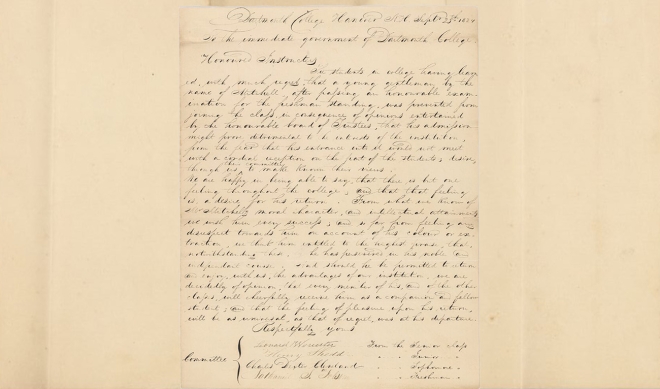 Dartmouth College Hanover N.H. Sept 23d 1824
To the immediate government of Dartmouth College
Honoured Instructors
The students in college having learn
ed, with much regret, that a young gentleman by the
name of Mitchell, after passing an honourable exam-
ination for the freshman standing, was prevented from
joining the class, in consequence of opinions entertained
by the honourable board of Trustees, that his admission
might prove detrimental to the interests of the institution,
from the fear that his entrance into it would not meet
with a cordial reception on the part of the students, desire,
through us, the committee to make known their views.
We are happy in being able to say, that there is but one
feeling throughout the college, and that that feeling
is a desire for his return. From what we know of
Mr Mitchell's moral character, and intellectual attainments
we wish him every success; and so far from feeling any
disrespect towards him on account of his colour or ex-
traction, we think him entitled to the highest praise, that,
notwithstanding he has persevered in his noble and
independent course. And should he be permitted to return
and enjoy, with us, the advantages of our institution, we are
decidedly of opinion, that every member of his, and of the other
classes, will cheerfully receive him as a companion and fellow
student; and that the feeling of pleasure upon his return,
will be as universal, as that of regret, was at his departure.
Respectfully yours
Leonard Worcester From the Senior Class
Henry " " Junior "
Committee Charles Dexter Cleveland " " Sophomore "
" " Freshman "